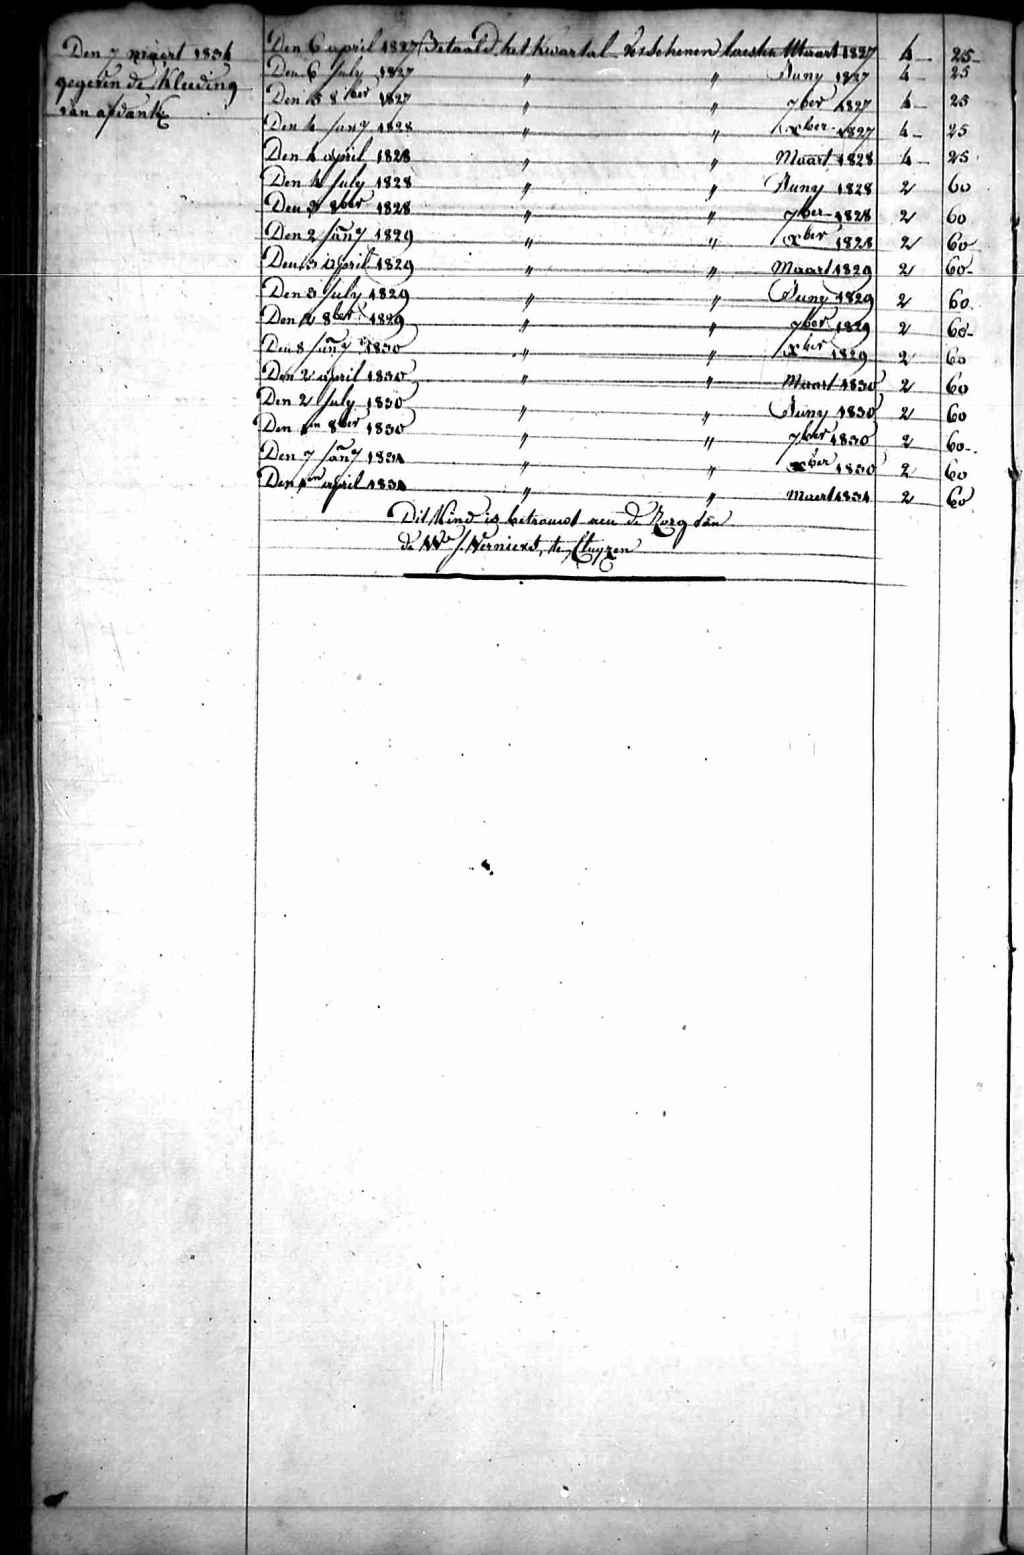 Den 7 maert 1831
gegeven de Kleeding
van afdank
Den 6 april 1827 Betaald het kwartal verschenen laesten Maart 1827 4 25
Den 6 July 1827 " " Juny 1827 4 25
Den 15 8ber 1827 " " 7ber 1827 4 25
Den 4 Jany 1828 " " xber 1827 4 25
Den 4 april 1828 " " Maart 1828 4 25
Den 4 July 1828 " " Juny 1828 2 60
Den 3 8ber 1828 " " 7ber 1828 2 60
Den 2 Jany 1829 " " xber 1828 2 60
Den 3 April 1829 " " Maart 1829 2 60
Den 3 July 1829 " " Juny 1829 2 60
Den 2 8ber 1829 " " 7ber 1829 2 60
Den 8 Jany 1830 " " xber 1829 2 60
Den 2 april 1830 " " Maart 1830 2 60
Den 2 July 1830 " " Juny 1830 2 60
Den 1en 8ber 1830 " " 7ber 1830 2 60
Den 7 Jany 1831 " " xber 1830 2 60
Den 1en april 1831 " " Maert 1831 2 60
Dit Kind is betrouwt aen de Zorg van
de We J. Vernierd, te Cluyzen